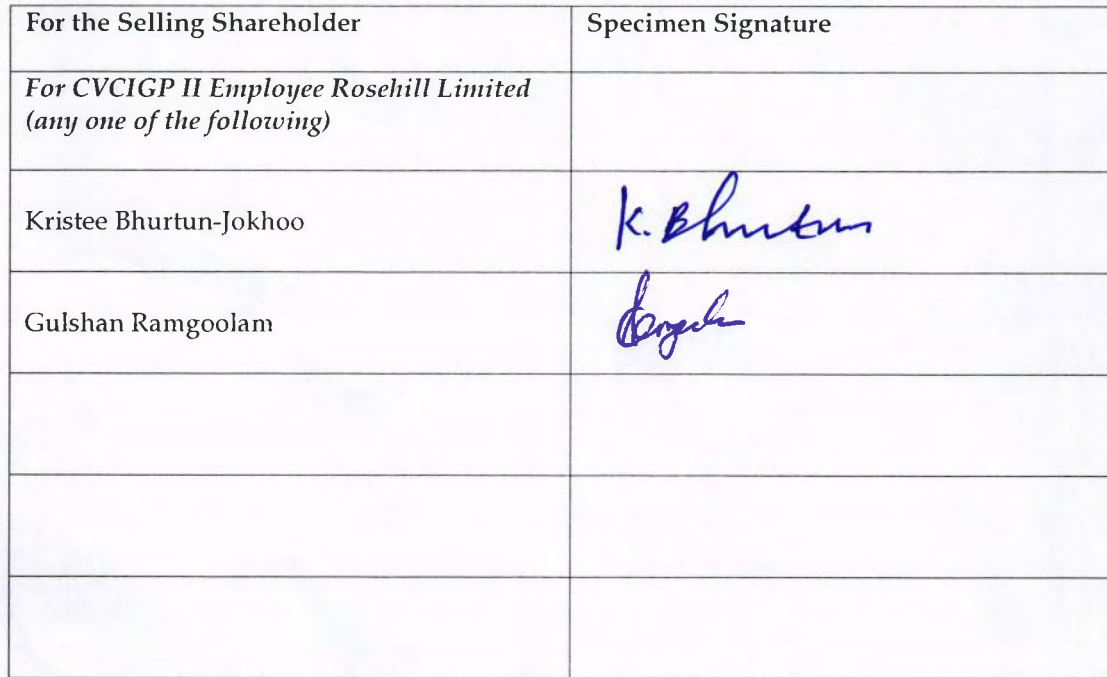 For the Selling Shareholder
Specimen Signature
For CVCIGP II Employee Rosehill Limited
(any one of the following)
Kristee Bhurtun-Jokhoo
K. Bhurtun
Gulshan Ramgoolam